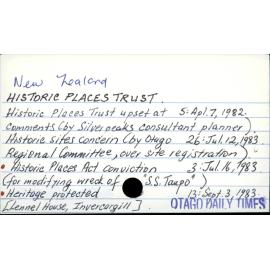 New Zealand
HISTORIC PLACES TRUST.
Historic Places Trust upset at 5. Apl. 7, 1982.
comments (by Silverpeaks consultant planner)
Historic sites concern (by Otago 26. Jul. 12, 1983
Regional Committee, over site registration)
• Historic Places Act conviction 3. Jul. 16, 1983
(for modifying wreck of "S.S. Taupo")
• Heritage protected 13. Sept. 3, 1983
[Lennel House, Invercargill]
OTAGO DAILY TIMES